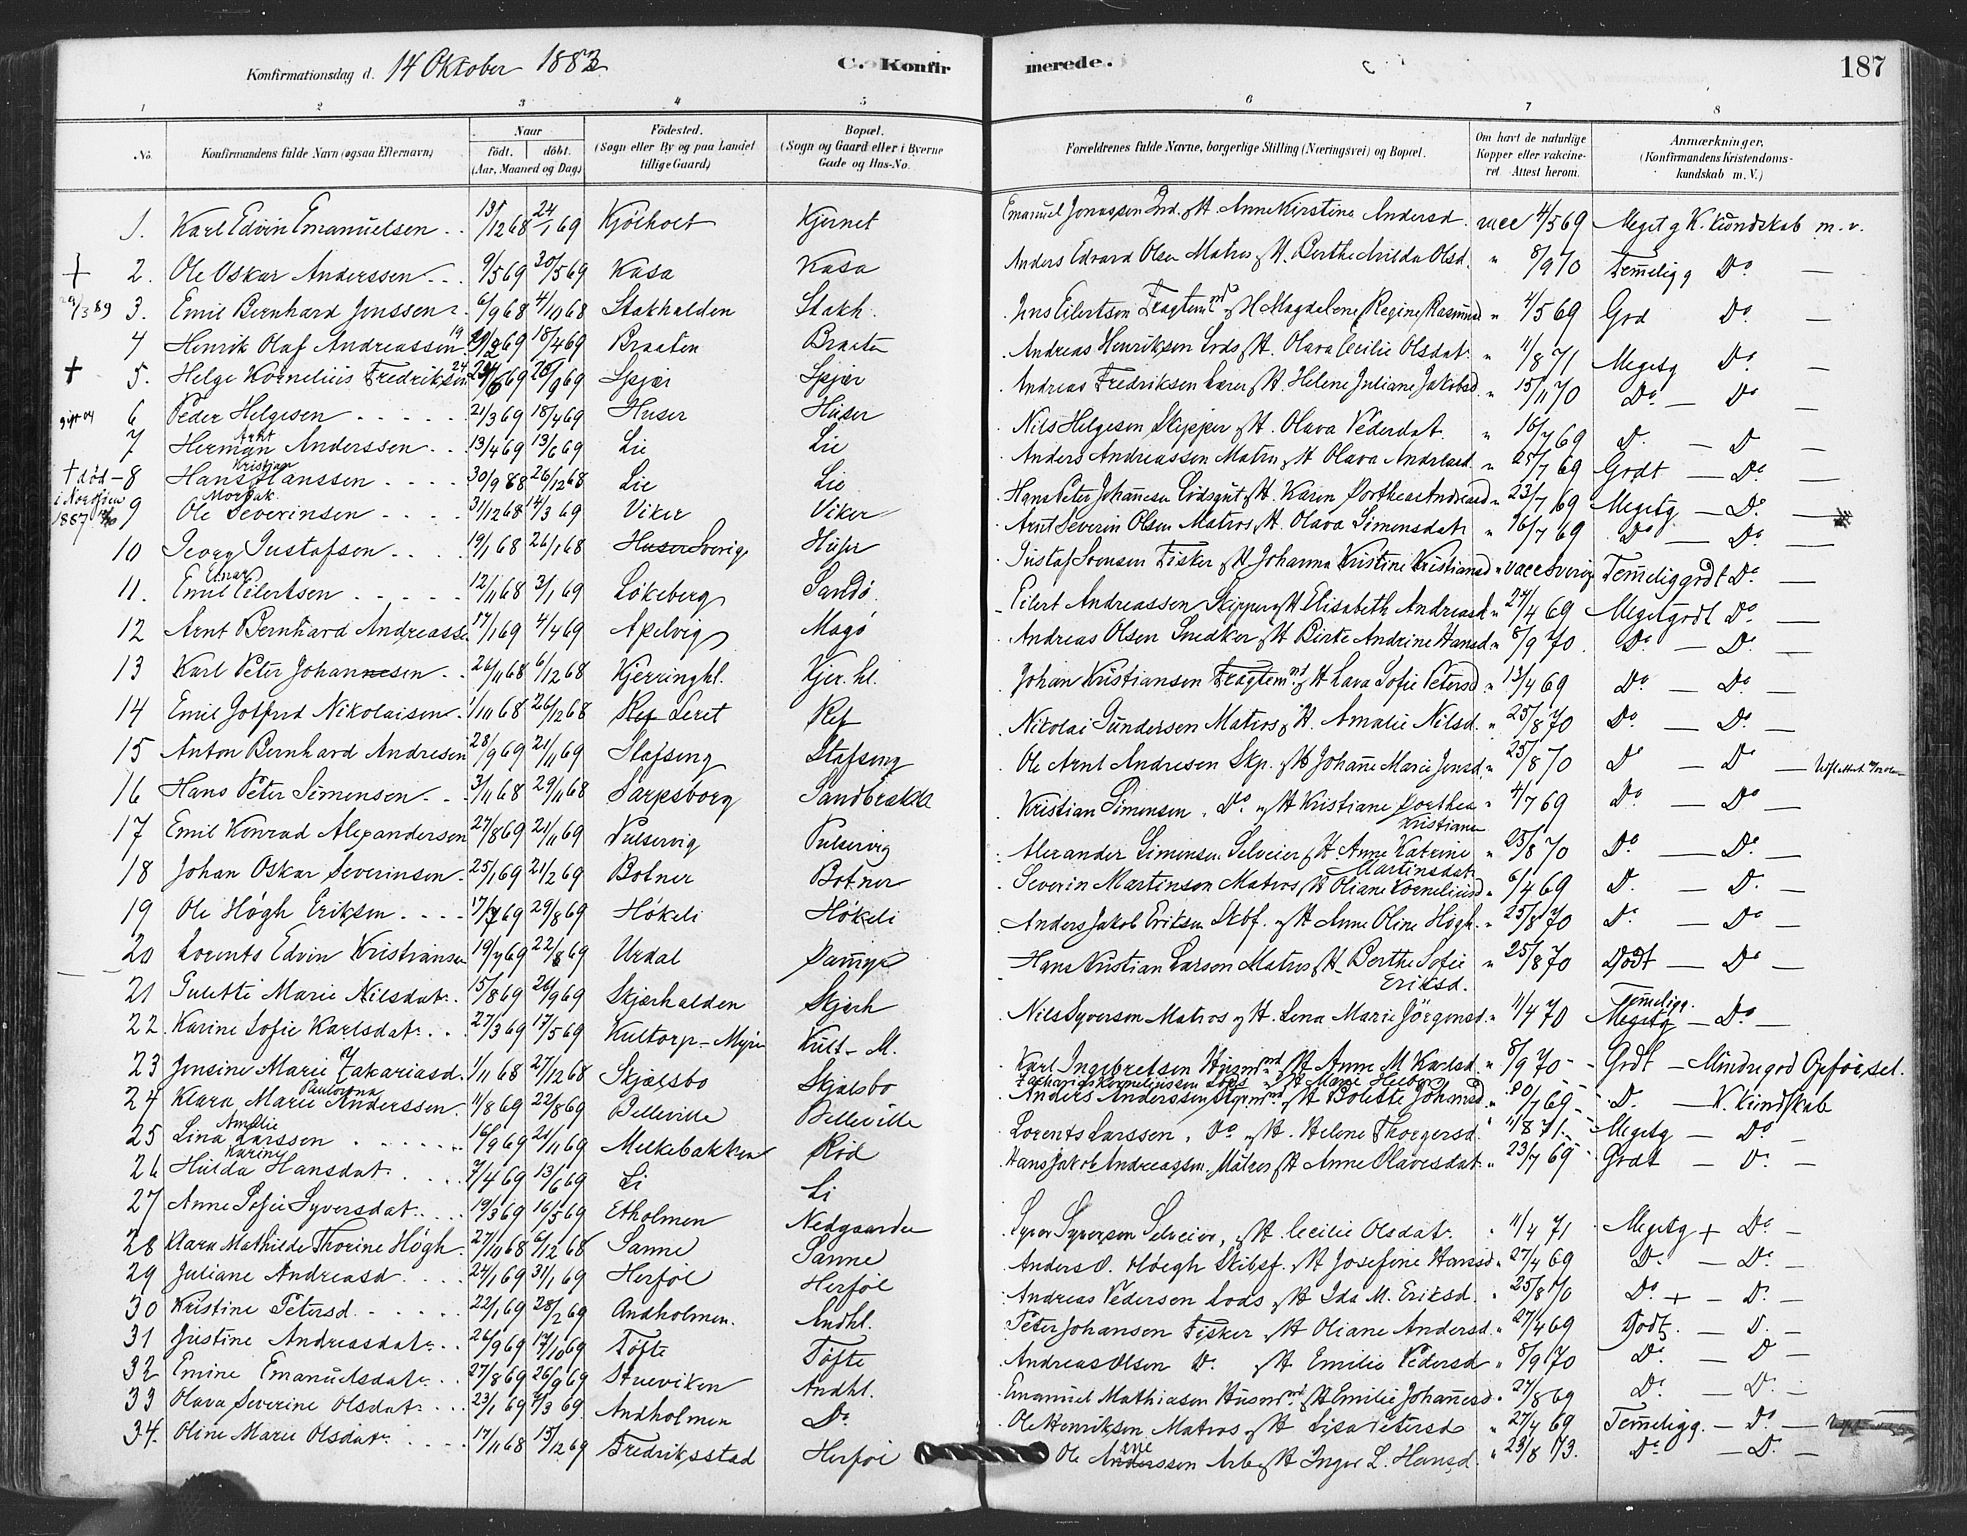 Konfirmationsdag d. 14 Oktober 1883 C. Konfirmerede. 187
1 2 3 4 5 6 7 8
No. Konfirmandens fulde Navn (ogsaa Efternavn) Naar født. døbt. (Aar, Maaned og Dag) Födested. (Sogn eller By og paa Landet tillige Gaard) Bopæl. (Sogn og Gaard eller i Byerne Gade og Hus-No. Forældrenes fulde Navne, borgerlige Stilling (Næringsvei) og Bopæl. Om havt de naturlige Kopper eller vakcineret. Attest herom. Anmærkninger, (Konfirmandens Kristendomskundskab m. V.)
1. Karl Edvin Emanuelsen 13/12 68 24/1 69 Kjölholt Kjernet Emanuel Jonassen Ind. og H. Anne Kirstine Andersd. vacc 4/5 69 Meget g K. Kundskab m. v.
+ 2. Ole Oskar Anderssen 9/5 69 30/5 69 Kasa Kasa Anders Edvard Olsen Matros og H. Berthe Milda Olsd. " 8/9 70 Temmelig g Do —
/3 89 3. Emil Bernhard Jenssen 6/9 68 4/10 68 Stakhalden Stakh. Jens Eilertsen Fragtemnd og H Magdelene Regine Rasmusd " 4/5 69 God Do —
4 Henrik Olaf Andreassen 19/2 69 18/4 69 Braaten Braaten Andreas Henriksen Lods og H. Olava Cecilie Olsdat. " 11/8 71 Megetg Do —
+ 5. Helge Kornelius Fredriksen 24/6 69 26/9 69 Spjær Spjær Andreas Fredriksen Lærer og H. Helene Juliane Jakobsd " 15/11 70 Do — Do —
gift og 6 Peder Helgesen 21/3 69 18/4 69 Huser Huser Nils Helgesen Skipper og H. Olava Pedersdat. " 16/7 69 D. — D —
7 Herman Arnt Anderssen 13/4 69 13/6 69 Lie Lie Anders Andreassen Matros og H Olava Andreasd. " 25/7 69 Godt — Do —
+ död i Nordsjøen 1887 8 Hans Kristian Hanssen 30/9 68 26/12 68 Lie Lie Hans Peter Johannesen Lodsgut og H. Karen Dorthea Andreasd " 23/7 69 Megetg — D. —
9 Ole Morgak Severinsen 31/12 68 14/3 69 Viker Viker Arnt Severin Olsen Matros og H. Olava Simensdat. " 16/7 69 Do — Do —
10 Georg Gustafsen 19/1 68 26/1 68 Huser Sverige Huser Gustaf Svensen Fisker og H Johanna Kristine Kristiansd " vacc Sverige Temmelig godt Do —
11. Emil Einar Eilertsen 12/11 68 3/1 69 Lökeberg Sandö Eilert Andreassen Skipper og H Elisabeth Andreasd. " 27/4 69 Meget godt Do —
12 Arnt Bernhard Andreassen 17/1 69 4/4 69 Apelvig Magö Andreas Olsen Snedker og H Birte Andrine Hansd " 8/9 70. Do — Do —
13 Karl Peter Johannesen 26/11 68 6/12 68 Kjerringhl. Kjer. hl. Johan Kristiansen Fragtemnd og H Lava Sofie Petersd " 13/4 69 Do — Do —
14 Emil Gotfred Nikolaisen 1/11 68 26/12 68 Ref Leret Ref Nikolai Gundersen Matros og H. Amalie Nilsd. " 25/8 70 Do — Do —
15 Anton Bernhard Andresen 28/9 69 21/11 69 Stafseng Stafseng Ole Arnt Andresen Skp. og H Johanne Marie Jensd. " 25/8 70 D — D —
16 Hans Peter Simensen 3/11 68 29/11 68 Sarpsborg Sandbrække Kristian Simensen, Do. og H Kristiane Dorthea Kristiansen " 4/7 69 Do — Do —
17 Emil Konrad Alexandersen 27/8 69 21/11 69 Pulservig Pulservig Alexander Simensen Selveier og H. Anne Katrine Martinsdat. " 25/8 70 Do — Do —
18 Johan Oskar Severinsen 25/1 69 21/2 69 Botner Botner Severin Martinsen Matros og H Oliane Korneliusd " 6/4 69 D. — D. —
19 Ole Högh Eriksen 17/7 69 29/8 69 Hökeli Hökeli Anders Jakob Eriksen Skbf. og H Anne Oline Högh. " 25/8 70 Do — Do
20 Lorents Edvin Kristiansen 19/7 69 22/8 69 Urdal Dammyr Hans Kristian Larsen Matros og H. Berthe Sofie Eriksd. " 25/8 70 Godt — Do —
21 Gulette Marie Nilsdat. 15/8 69 26/9 69 Skjærhalden Skjærh Nils Syversen Matros og H. Lena Marie Jörgensd. " 11/4 70 Temmelig g. Megetg — Do —
22. Karine Sofie Karlsdat. 27/3 69 17/5 69 Kultorp-Myre Kult-M. Karl Ingebretsen Husmnd og H Anne M Karlsd. " 8/9 70 - Godt — Mindre god Opførsel.
23 Jensine Marie Zakariasd. 1/11 68 27/12 68 Skjælsbo Skjælsbo Zacharias Korneliussen Lods og H Marie Helb.
24 Klara Marie Paulovna Anderssen 11/8 69 22/8 69 Belleville Belleville Anders Anderssen Styrmnd og H Bolette Johansd " 20/7 69 - D. — K. Kundskab
25 Lina Amelie Larssen 16/9 69 21/11 69 Melkebakken Röd Lorents Larssen, Do og H. Helene Thorgersd. " 11/8 71. Megetg — Do —
26 Hulda Karine Hansdat. 7/4 69 13/6 69 Li Li Hans Jakob Andreassen, Matros og H Anne Olavesdat. " 23/7 69 - Godt — D. —
27 Anne Sofie Syversdat. 19/3 69 16/5 69 Etholmen Nedgaarden Syver Syversen Selveier, og H. Cecilie Olsdat. " 11/4 71 Megetg + Do —
28 Klara Mathilde Thorine Högh. 27/10 68 6/12 68 Sanne Sanne Anders O. Höegh Skibsf. og H Josefine Hansd " 27/4 69 Do — Do —
29 Juliane Andreasd. 24/1 69 31/1 69 Herföl Herföl Andreas Pedersen Lods og H Ida M. Eriksd. " 25/8 70 Do + — D. —
30 Kristine Petersd. 22/1 69 28/2 69 Andholmen. Andhl. Peter Johansen Fisker og H Oliane Andersd. " 27/4 69 Godt. — D. —
31 Justine Andreasdat. 26/9 69 17/10 69 Töfte Töfte Andreas Olsen D. og H Emilie Pedersd " 8/9 70 Do — D —
32 Emine Emanuelsdat. 27/8 69 26/9 69 Stueviken Andhl. Emanuel Mathiasen Husmnd og H Emilie Johannesd. " 27/8 69 Do — D. —
33 Olava Severine Olsdat. 23/1 69 7/3 69 Andholmen Do. Ole Henriksen Matros og H Lisa Petersd " 27/4 69 Temmelig g. — Do —
34. Oline Marie Olsdat. 17/11 68 13/12 69 Fredriksstad Herföl Ole Anderssen Arb. og H Inger L. Hansd. " 23/8 73. Do — D. —